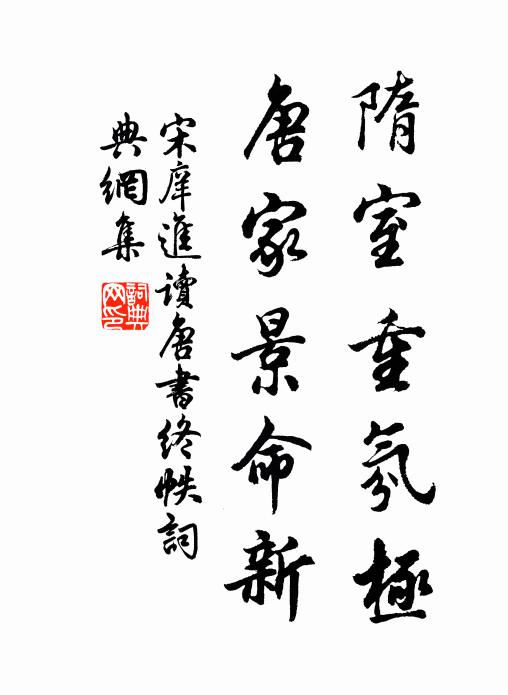 隋室重氛極
唐家景命新
宋庠進讀唐書終帙詞
典網集
詞典
网印